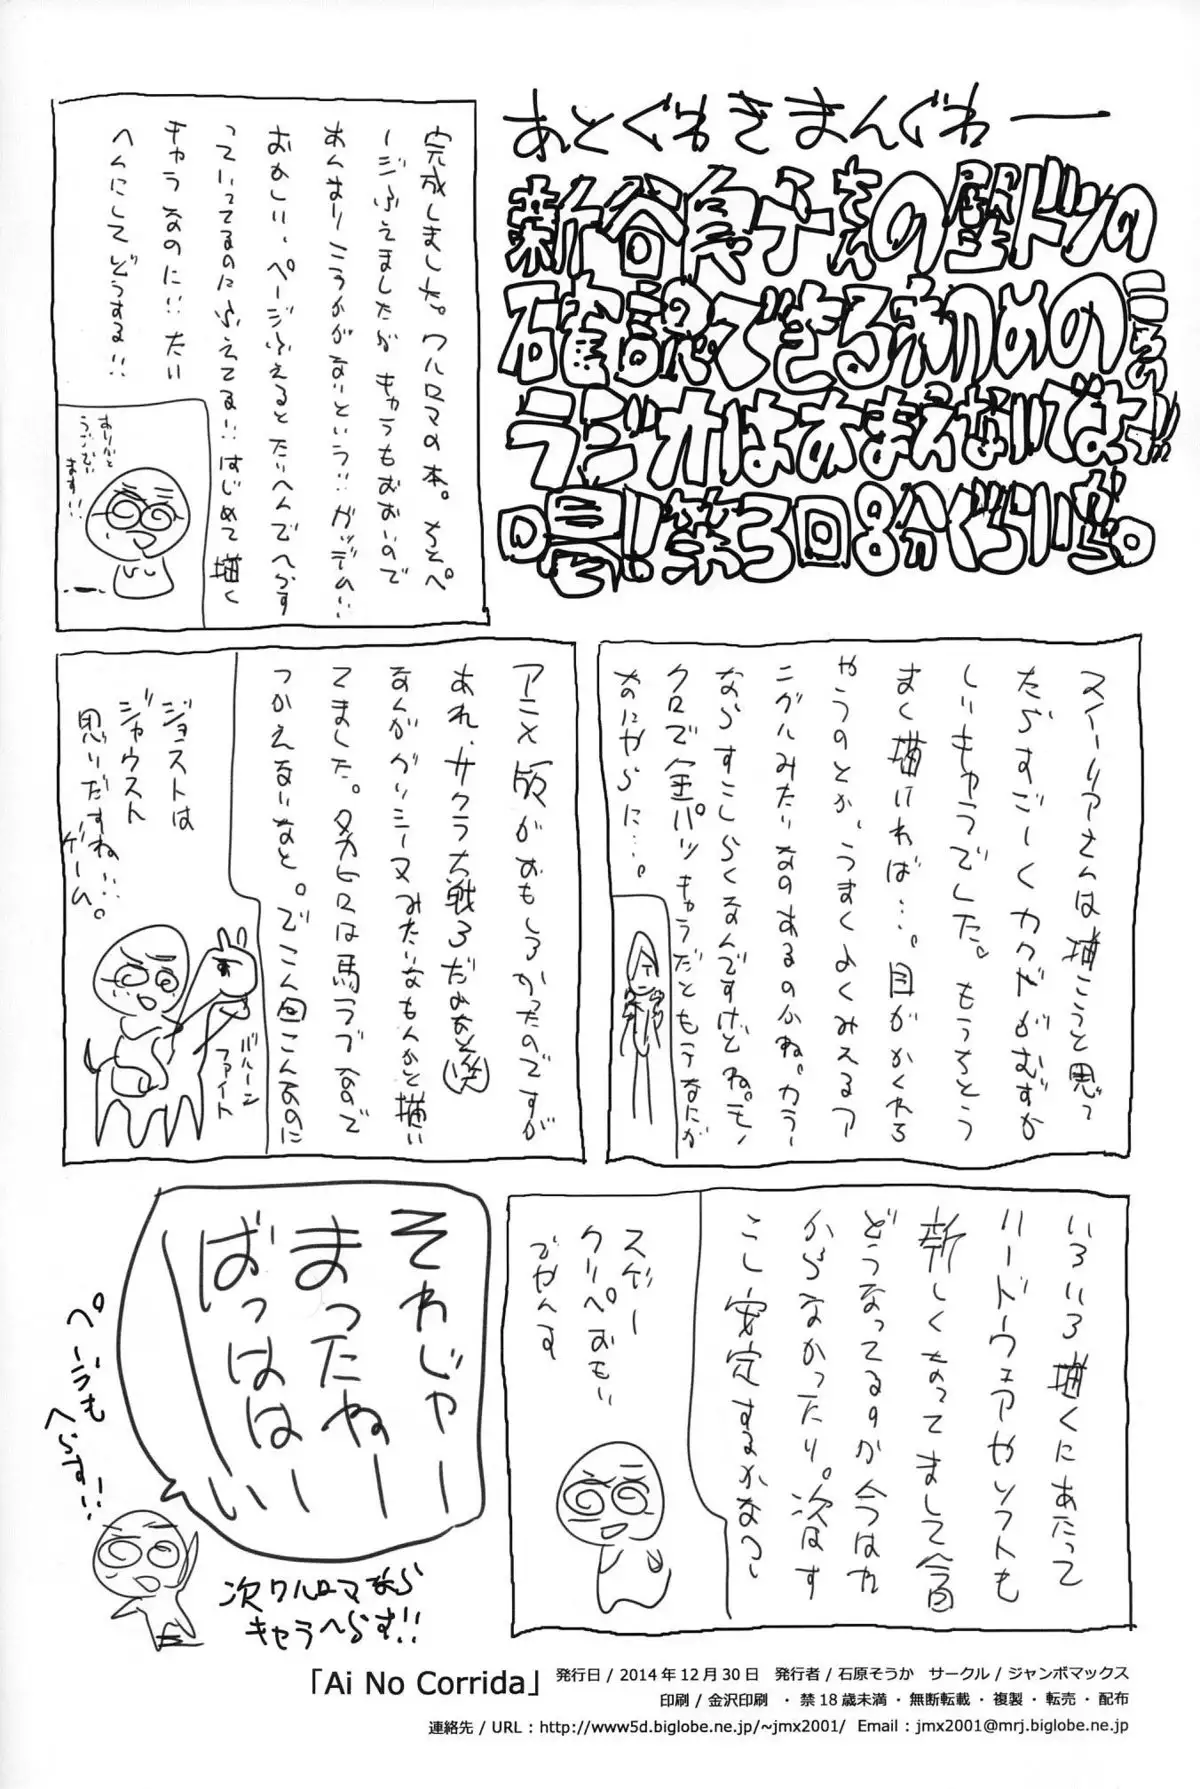 あとぐわきまんぐわー
新谷良子さんの壁ドンの
確認できる初めての
ラジオはおまえないでよっ!!
第3回8分ぐらい
完成しました。ワルロマの本。ちょいペ
ージふえましたが キャラもおおいので
あんまりころががないという!! ガッデム!!
おかしい、ページふえるとたいへんでへらす
っていってるのにふえてる!! はじめて描く
キャラなのに!! たい
へんにしてどうする!!
ありがと
うござい
ます!!
スイーリアさんは描こうと思て
たらすごーくカクがむずか
しいキャラでした。もうちとう
まく描ければ…。目がかくれる
やうのとか、うまくよくみえるア
ングルみたいなのあるのかね。カラー
ならすこしらくなんですけどね。モノ
クロで金パツキャラだともうなにが
なにやらに…。
アニメ版がおもしろかったのですが
あれ、サクラ大戦3だよなと(笑)
なんかグリシーヌみたいなもんかと描い
てました。タカヒロは馬ラブなので
つかえないなと。でこん回こんなのに
ジョストは
ジャウスト
思いだすね…
ゲーム。
バルーン
ファイト
いろいろ描くにあたって
ハードウェアやソフトも
新しくなってまして今回
どうなってるのか今はわ
からなかったり。次はす
こし安定するかなっ
スゲー
クリペおもい
でやんす
それじゃー
まったねー
ばっはは
ーい
ページも
へらす!!
次ワルロマなら
キャラへらす!!
「Ai No Corrida」 発行日 / 2014年12月30日　発行者 / 石原そうか　サークル / ジャンボマックス
印刷 / 金沢印刷　・禁18歳未満・無断転載・複製・転売・配布
連絡先 / URL : http://www5d.biglobe.ne.jp/~jmx2001/　Email : jmx2001@mrj.biglobe.ne.jp